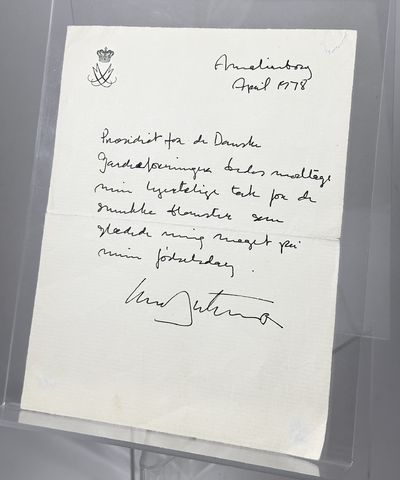 Amalienborg
April 1978
Præsidiet for de Danske
Garderforeninger bedes modtage
min hjertelige tak for de
smukke blomster som
glædede mig meget på
min fødselsdag.